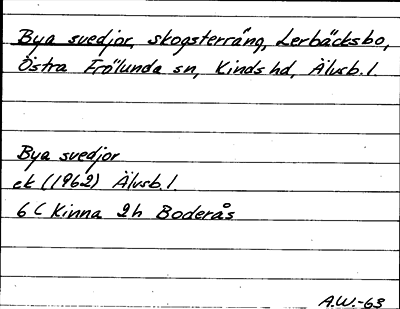 Bya svedjor, skogsterräng, Lerbäcksbo,
Östra Frölunda sn, Kinds hd, Älvsb. l.
Bya svedjor
ek (1962) Älvsb. l.
6 C Kinna 2h Boderås
A.W.-63